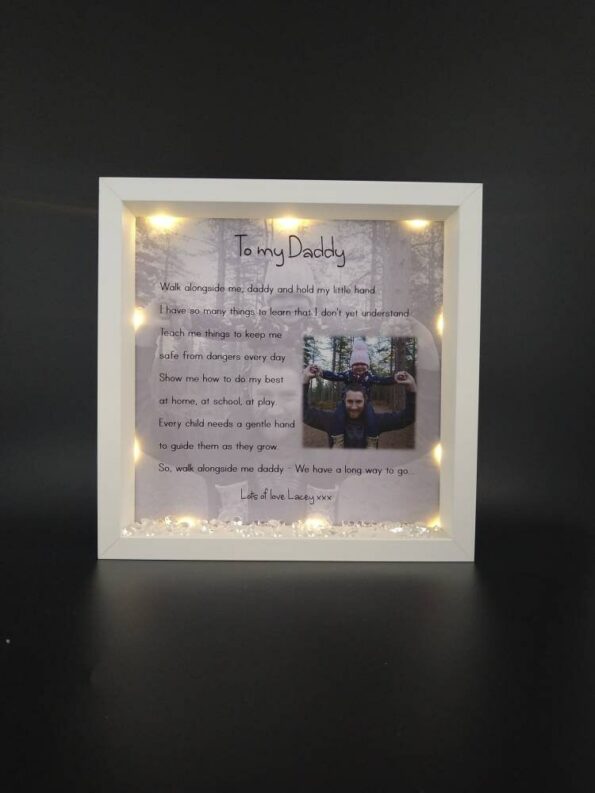 To my Daddy
Walk alongside me, daddy and hold my little hand.
I have so many things to learn that I don't yet understand.
Teach me things to keep me
safe from dangers every day
Show me how to do my best
at home, at school, at play.
Every child needs a gentle hand
to guide them as they grow.
So, walk alongside me daddy - We have a long way to go...
Lots of love Lacey xxx